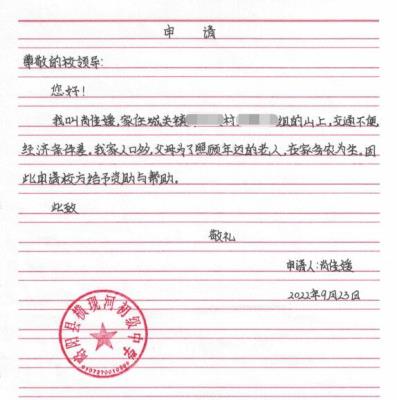 申 请
尊敬的校领导:
您好!
我叫尚佳媛,家住城关镇 村 组的山上,交通不便
经济条件差。我家人口多,父母为了照顾年迈的老人,在家务农为生。因
此申请校方给予资助与帮助。
此致
敬礼
申请人:尚佳媛
2022年9月23日
略阳县横现河初级中学